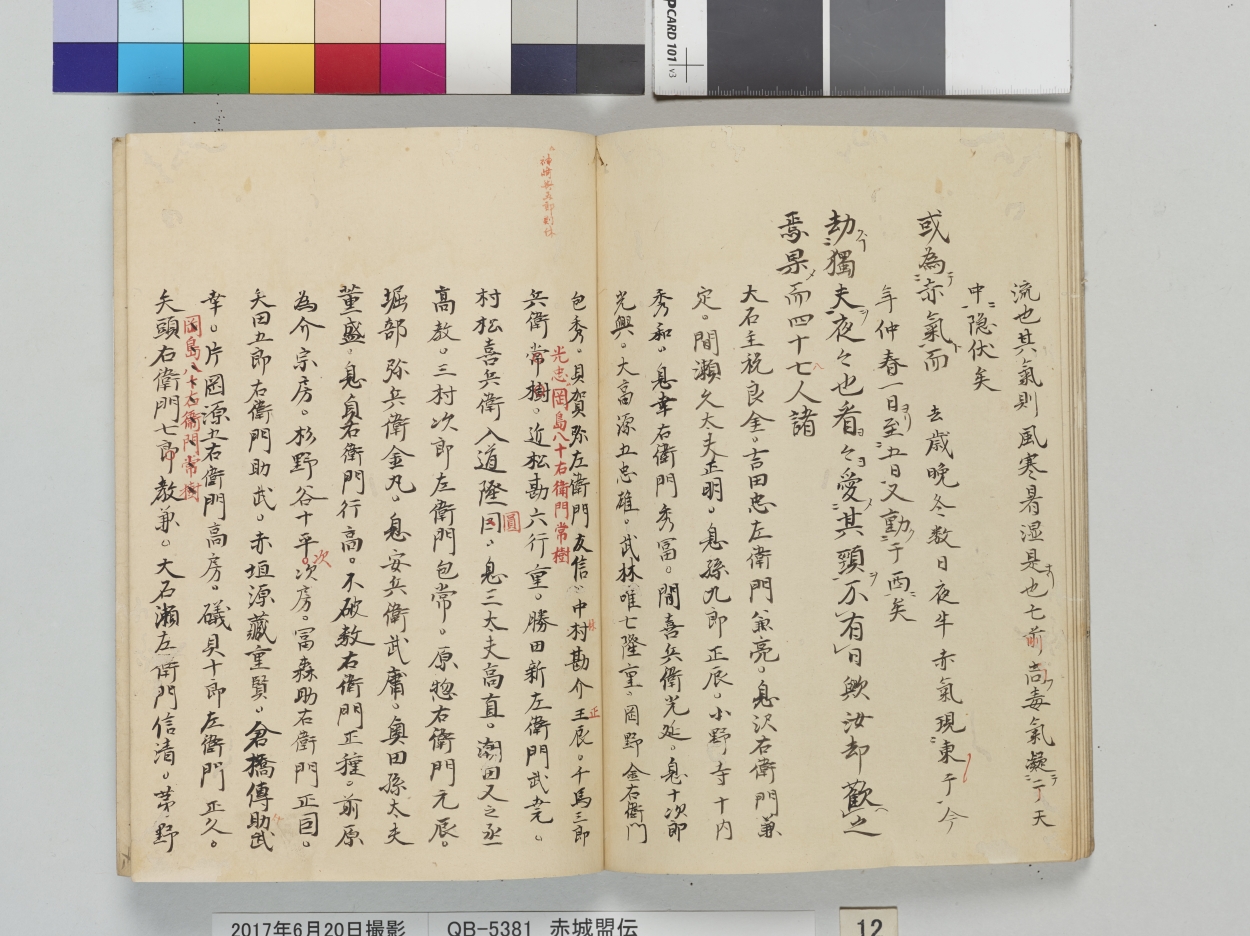 流也其氣則風寒暑湿是也七前尚毒氣凝于天
中隐伏矣
或為赤氣而 去歳晩冬数日夜半赤氣現東于今
年仲春一日至五日又動于西矣
劫獨夫夜々也看々愛其頸不有日欤汝却歡之
焉果而四十七人諸
大石主税良金。吉田忠左衛門兼亮。息沢右衛門兼
定。間瀬久太夫正明。息孫九郎正辰。小野寺十内
秀和。息幸右衛門秀冨。間喜兵衛光延。息十次郎
光興。大高源五忠雄。武林唯七隆重。岡野金右衛門
神崎与五郎則休
包秀。貝賀弥左衛門友信。中村勘介正辰。千馬三郎
光忠岡島八十右衛門常樹
兵衛常樹。近松勘六行重。勝田新左衛門武尭。
村松喜兵衛入道隆圓。息三太夫高直。潮田又之丞
高教。三村次郎左衛門包常。原惣右衛門元辰。
堀部弥兵衛金丸。息安兵衛武庸。奥田孫太夫
董盛。息貞右衛門行高。不破数右衛門正種。前原
為介宗房。杉野谷十平次次房。冨森助右衛門正因。
矢田五郎右衛門助武。赤垣源藏重賢。倉橋傳助武
幸。片岡源五右衛門高房。礒貝十郎左衛門正久。
岡島八十右衛門常樹
矢頭右衛門七郎教兼。大石瀬左衛門信清。茅野
2017年6月20日撮影 QB-5381 赤城盟伝 12
CARD 101 v3